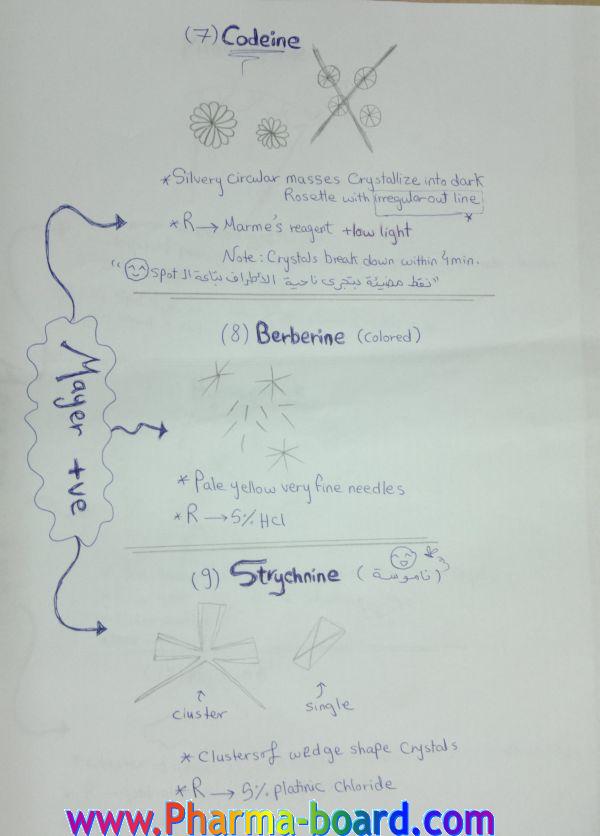 (7) Codeine
*Silvery circular masses Crystallize into dark
Rosette with irregular out line
*
*R → Marme's reagent +low light
Note: Crystals break down within 4min.
"نقط مضيئة بتجرى ناحية الأطراف بتاعة ال spot"
Mayer +ve
(8) Berberine (colored)
*Pale yellow very fine needles
*R → 5% Hcl
(9) Strychnine (ناموسة)
cluster
single
*Clusters of wedge shape Crystals
*R → 5% platinic chloride
www.Pharma-board.com